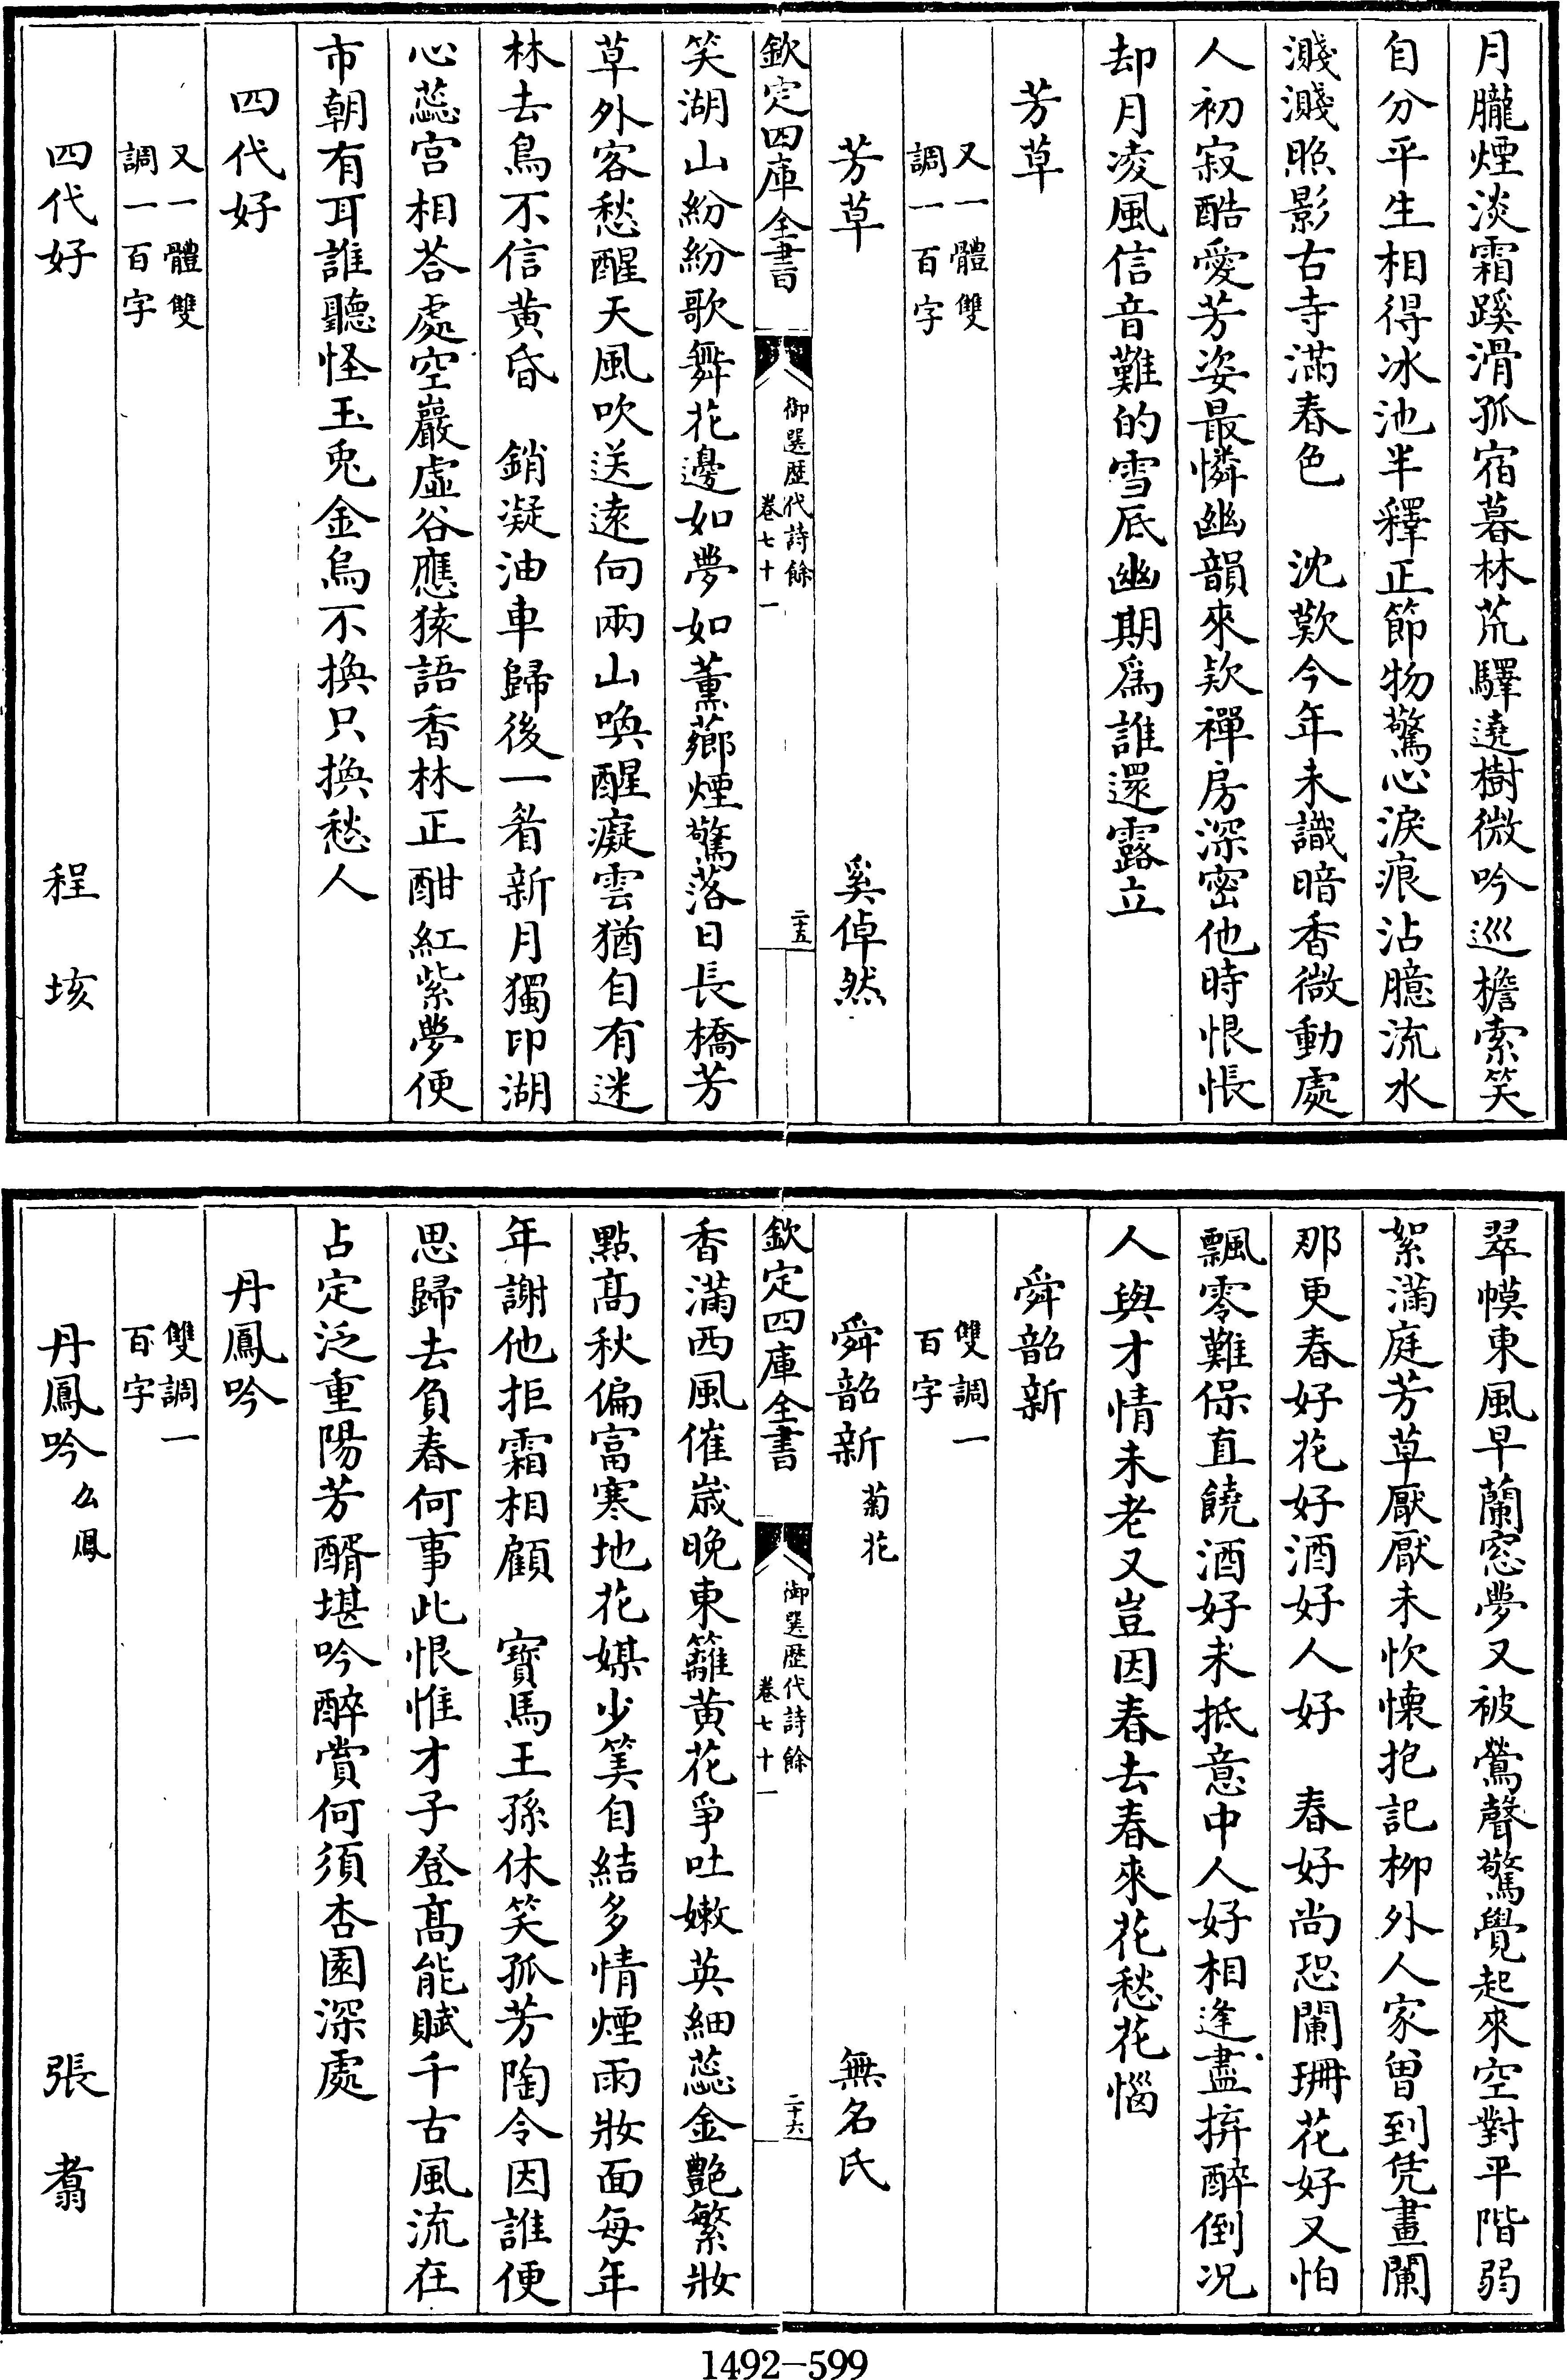 月朧煙淡霜蹊滑孤宿暮林荒驛遶樹微吟巡檐索笑
自分平生相得冰池半釋正節物驚心淚痕沾臆流水
濺濺照影古寺滿春色　沈歎今年未識暗香微動處
人初寂酷愛芳姿最憐幽韻來欵禪房深密他時恨悵
却月凌風信音難的雪底幽期爲誰還露立
芳草
又一體雙
調一百字
芳草　奚倬然
欽定四庫全書
御選歴代詩餘
卷七十一
二十五
笑湖山紛紛歌舞花邊如夢如薰薌煙驚落日長橋芳
草外客愁醒天風吹送逺向兩山喚醒癡雲猶自有迷
林去鳥不信黄昏　銷凝油車歸後一看新月獨印湖
心蕊宫相荅處空巖虚谷應猿語香林正酣紅紫夢便
市朝有耳誰聽怪玉兎金烏不換只換愁人
四代好
又一體雙
調一百字
四代好　程垓
翠幙東風早蘭窓夢又被鶯聲驚覺起來空對平階弱
絮滿庭芳草厭厭未忺懐抱記柳外人家曽到凭畫闌
那更春好花好酒好人好　春好尚恐闌珊花好又怕
飄零難保直饒酒好未抵意中人好相逢盡拚醉倒况
人與才情未老又豈因春去春來花愁花惱
舜韶新
雙調一
百字
舜韶新菊花　無名氏
欽定四庫全書
御選歴代詩餘
卷七十一
二十六
香滿西風催嵗晚東籬黄花爭吐嫩英細蕊金艷繁妝
點髙秋偏富寒地花媒少筭自結多情煙雨妝面每年
年謝他拒霜相顧　寳馬王孫休笑孤芳陶令因誰便
思歸去負春何事此恨惟才子登髙能賦千古風流在
占定泛重陽芳醑堪吟醉賞何須杏園深處
丹鳳吟
雙調一
百字
丹鳳吟么鳳　張翥
1492-599